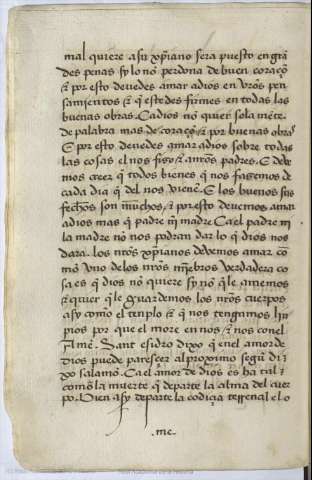 mal quiere a su xp̃iano sera puesto en grã
des penas sy lo nõ perdona de buen coraçõ
& por esto deuedes amar a dios en vr̃os pen
samientos & q̃ estedes firmes en todas las
buenas obras. Ca dios nõ quier sola mẽte
de palabra mas de coraçõ & por buenas obras
E por esto deuedes amar a dios sobre todas
las cosas el nos fiso & a nr̃os padres. E deue
mos creer q̃ todos bienes q̃ nos fasemos de
cada dia q̃ del nos vienẽ. E los buenos sus
fechos son muchos & por esto deuemos amar
a dios mas q̃ padre nj madre Ca el padre nj
la madre nõ nos podran dar lo q̃ dios nos
dara. los nr̃os xp̃ianos deuemos amar co
mõ vno de los nr̃os mj̃ebros verdadera co
sa es q̃ dios nõ quiere sy nõ q̃ le amemos
& quier q̃ le guardemos los nr̃os cuerpos
asy como el tenplo & q̃ nos tengamos lin
pios por que el more en nos & nos con el
Amẽ. Sant esidro dixo q̃ en el amor de
dios puede paresçer al proximo segũ di
xo salamõ. Ca el amor de dios es ha tal
como la muerte q̃ departe la alma del cuer
po. bien asy departe la codiçia terrenal e lo
.me.